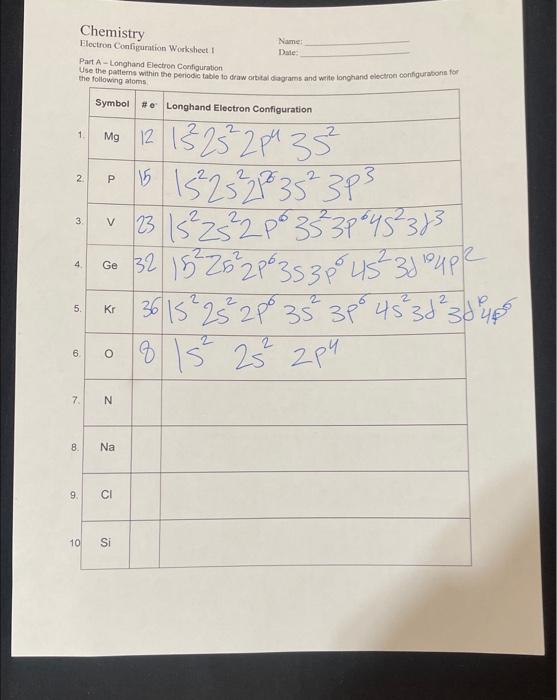 Chemistry
Electron Configuration Worksheet 1
Name:
Date:
Part A – Longhand Electron Configuration
Use the patterns within the periodic table to draw orbital diagrams and write longhand electron configurations for
the following atoms.
Symbol # e⁻ Longhand Electron Configuration
1. Mg 12 1s²2s²2p⁴ 3s²
2. P 15 1s²2s²2p⁶3s²3p³
3. V 23 1s²2s²2p⁶3s²3p⁶4s²3d³
4. Ge 32 1s²2s²2p⁶3s3p⁶4s²3d¹⁰4p²
5. Kr 36 1s²2s²2p⁶ 3s² 3p⁶ 4s²3d²3d¹⁰4p⁶
6. O 8 1s² 2s² 2p⁴
7. N
8. Na
9. Cl
10 Si